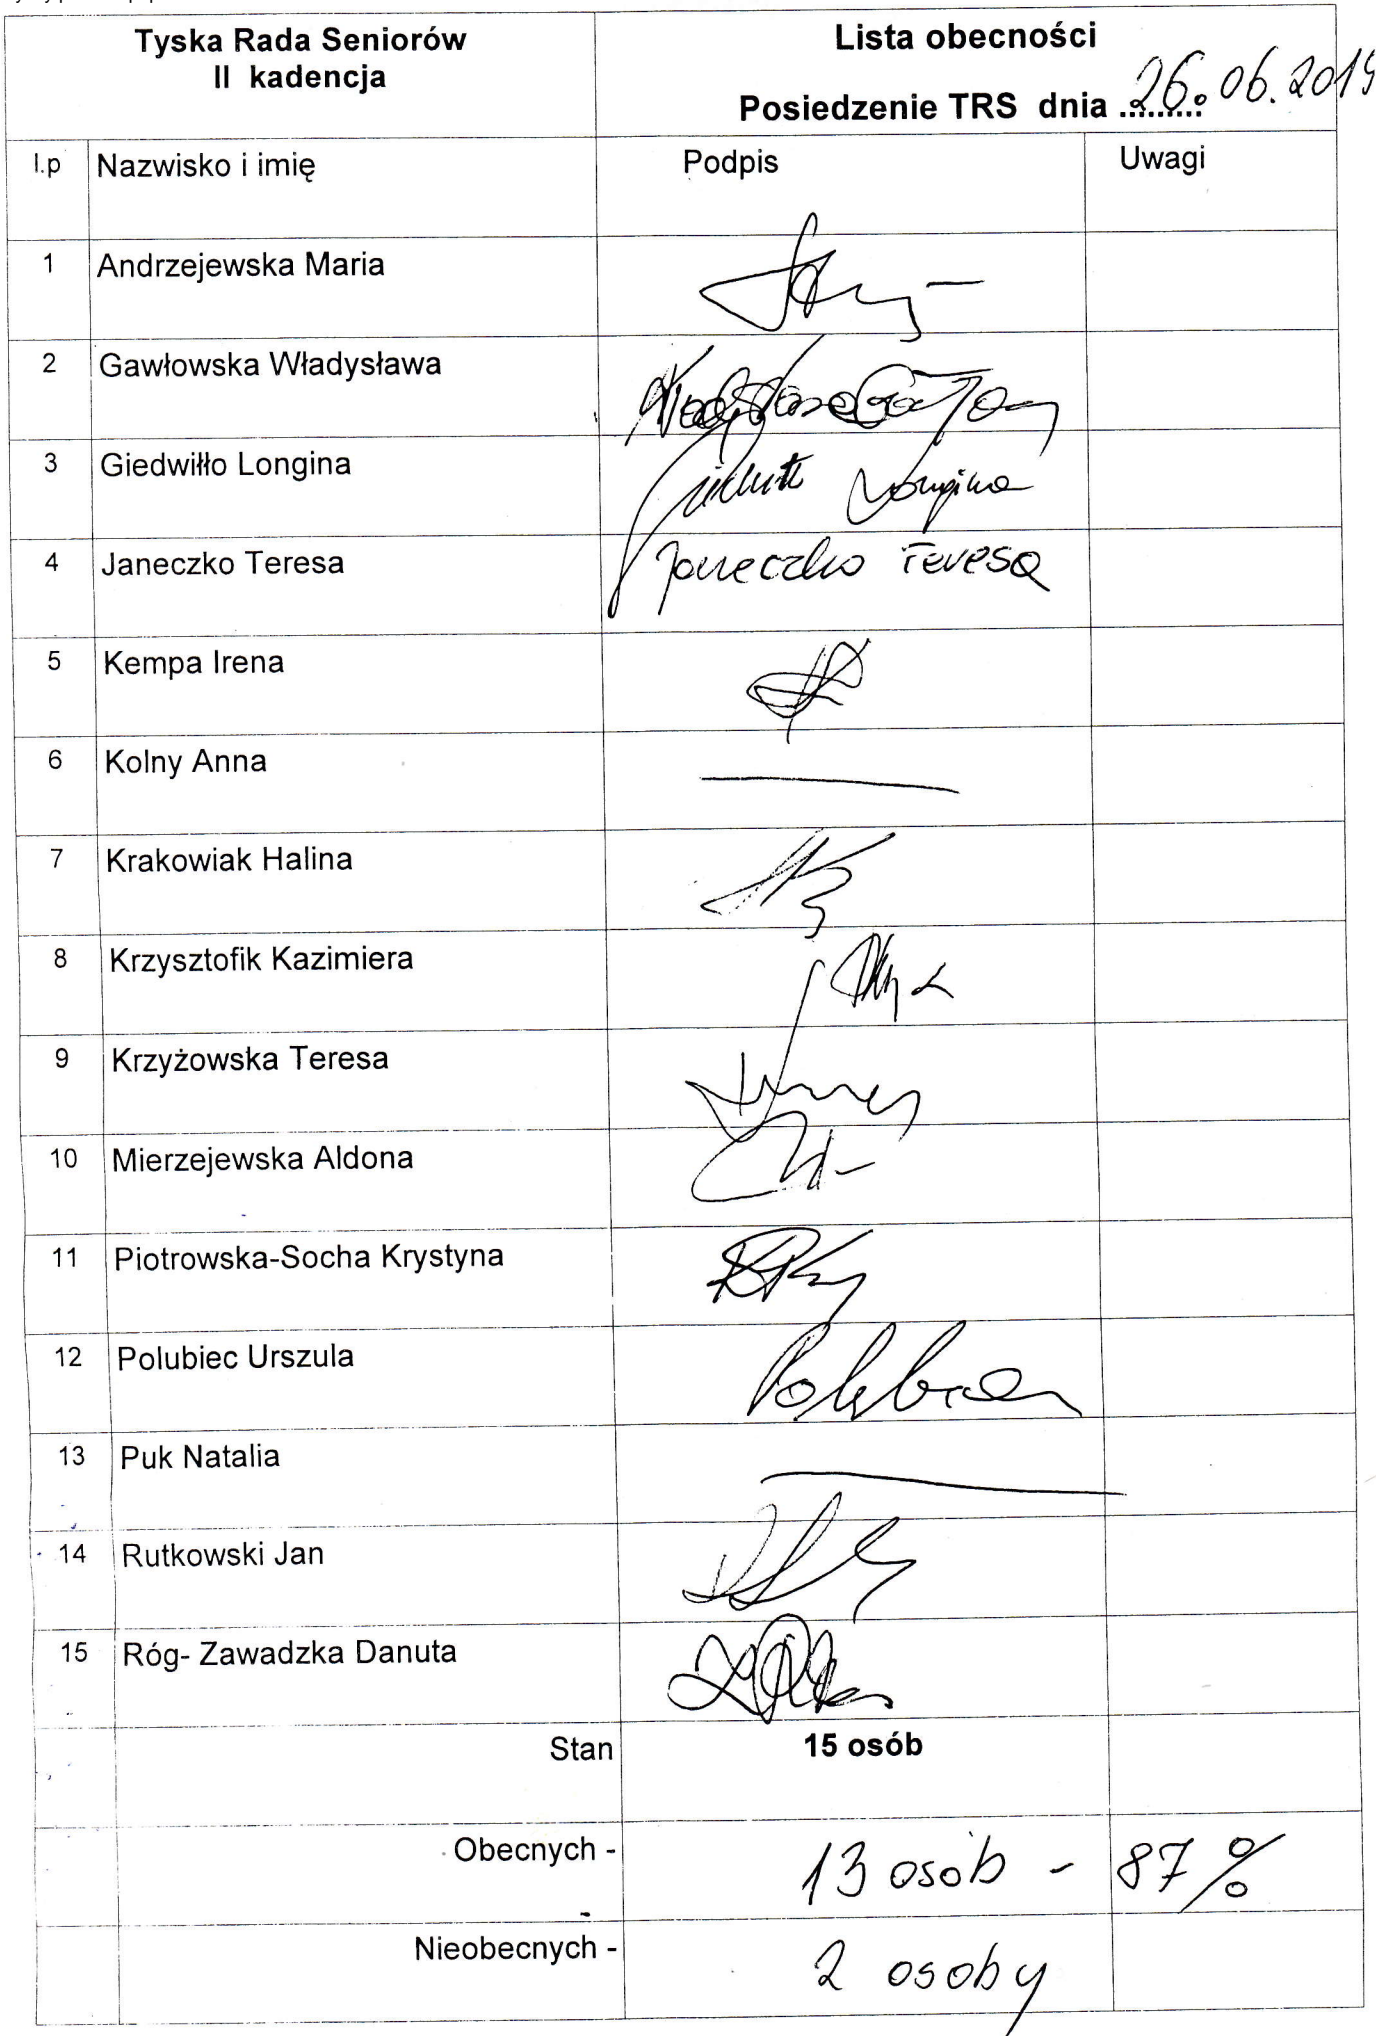 Tyska Rada Seniorów
II kadencja
Lista obecności
Posiedzenie TRS dnia ......... 26.06.2019
l.p Nazwisko i imię Podpis Uwagi
1 Andrzejewska Maria
2 Gawłowska Władysława
3 Giedwiłło Longina Longina
4 Janeczko Teresa Janeczko Teresa
5 Kempa Irena
6 Kolny Anna
7 Krakowiak Halina
8 Krzysztofik Kazimiera
9 Krzyżowska Teresa
10 Mierzejewska Aldona
11 Piotrowska-Socha Krystyna
12 Polubiec Urszula
13 Puk Natalia
14 Rutkowski Jan
15 Róg- Zawadzka Danuta
Stan 15 osób
Obecnych - 13 osób - 87 %
Nieobecnych - 2 osoby